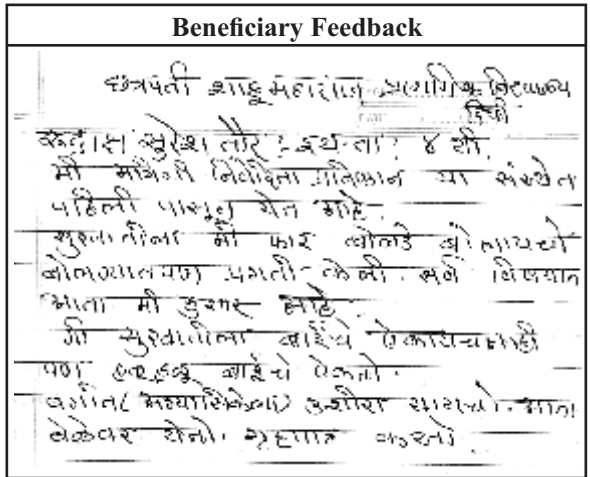 Beneficiary Feedback
छत्रपती शाहू महाराज प्राथमिक विद्यालय
दिघी
रुद्राक्ष सुरेश तौर : इयत्ता : ४ थी.
मी भगिनी निवेदिता प्रतिष्ठान या संस्थेत
पहिली पासून येत आहे.
सुरुवातीला मी फार बोबडे बोलायचो
बोलण्यात पण प्रगती केली. सर्व विषयात
आता मी हुशार आहे.
मी सुरुवातीला बाईंचे ऐकायचा नाही
पण हळूहळू बाईंचे ऐकतो.
वर्गात (अभ्यासिकेला) उशीरा यायचो. आता
वेळेवर येतो. गृहपाठ करतो.